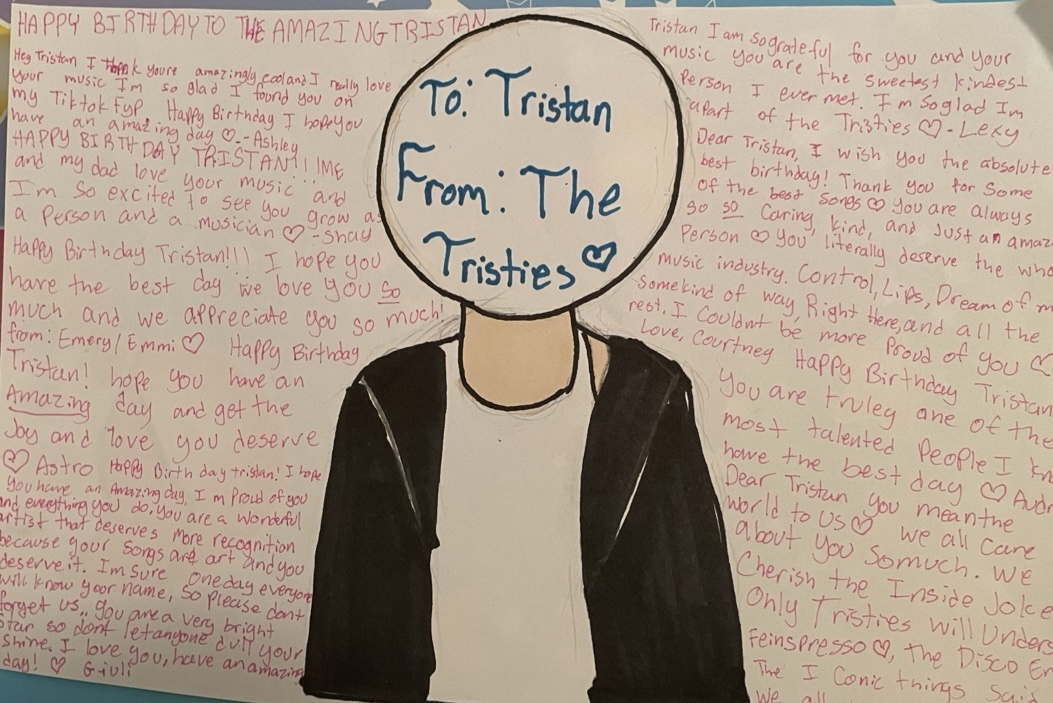 HAPPY BIRTHDAY TO THE AMAZING TRISTAN
Hey Tristan I think youre amazingly cool and I really love
your music I'm so glad I found you on
my TikTok FYP. Happy Birthday I hope you
have an amazing day ♡ -Ashley
HAPPY BIRTHDAY TRISTAN!! !ME
and my dad love your music and
I'm so excited to see you grow as
a person and a musician ♡ -Shay
Happy Birthday Tristan!!! I hope you
have the best day we love you so
much and we appreciate you so much!
from: Emery/Emmi ♡ Happy Birthday
Tristan! hope you have an
Amazing day and get the
Joy and love you deserve
♡ Astro Happy Birthday tristan! I hope
you have an Amazing day, I'm Proud of you
and everything you do, you are a wonderful
artist that deserves more recognition
because your songs are art and you
deserve it. I'm sure one day everyone
will know your name, so please dont
forget us.. you are a very bright
star so dont let anyone dull your
shine. I love you, have an amazing
day! ♡ Giuli
To: Tristan
From: The
Tristies ♡
Tristan I am so grateful for you and your
music you are the sweetest kindest
Person I ever met. I'm so glad Im
apart of the Tristies ♡ - Lexy
Dear Tristan, I wish you the absolute
best birthday! Thank you for some
of the best songs ♡ you are always
so so caring, kind, and just an amaz
Person ♡ you literally deserve the who
music industry. Control, Lips, Dream of m
somekind of way, Right Here, and all the
rest. I Couldnt be more Proud of you ♡
Love, Courtney Happy Birthday Tristan
You are truley one of the
most talented People I kn
have the best day ♡ Audr
Dear Tristan you meanthe
world to us ♡ we all care
about you somuch. We
Cherish the Inside Joke
Only Tristies will Unders
Feinspresso ♡, The Disco Er
The I Conic things said
we all